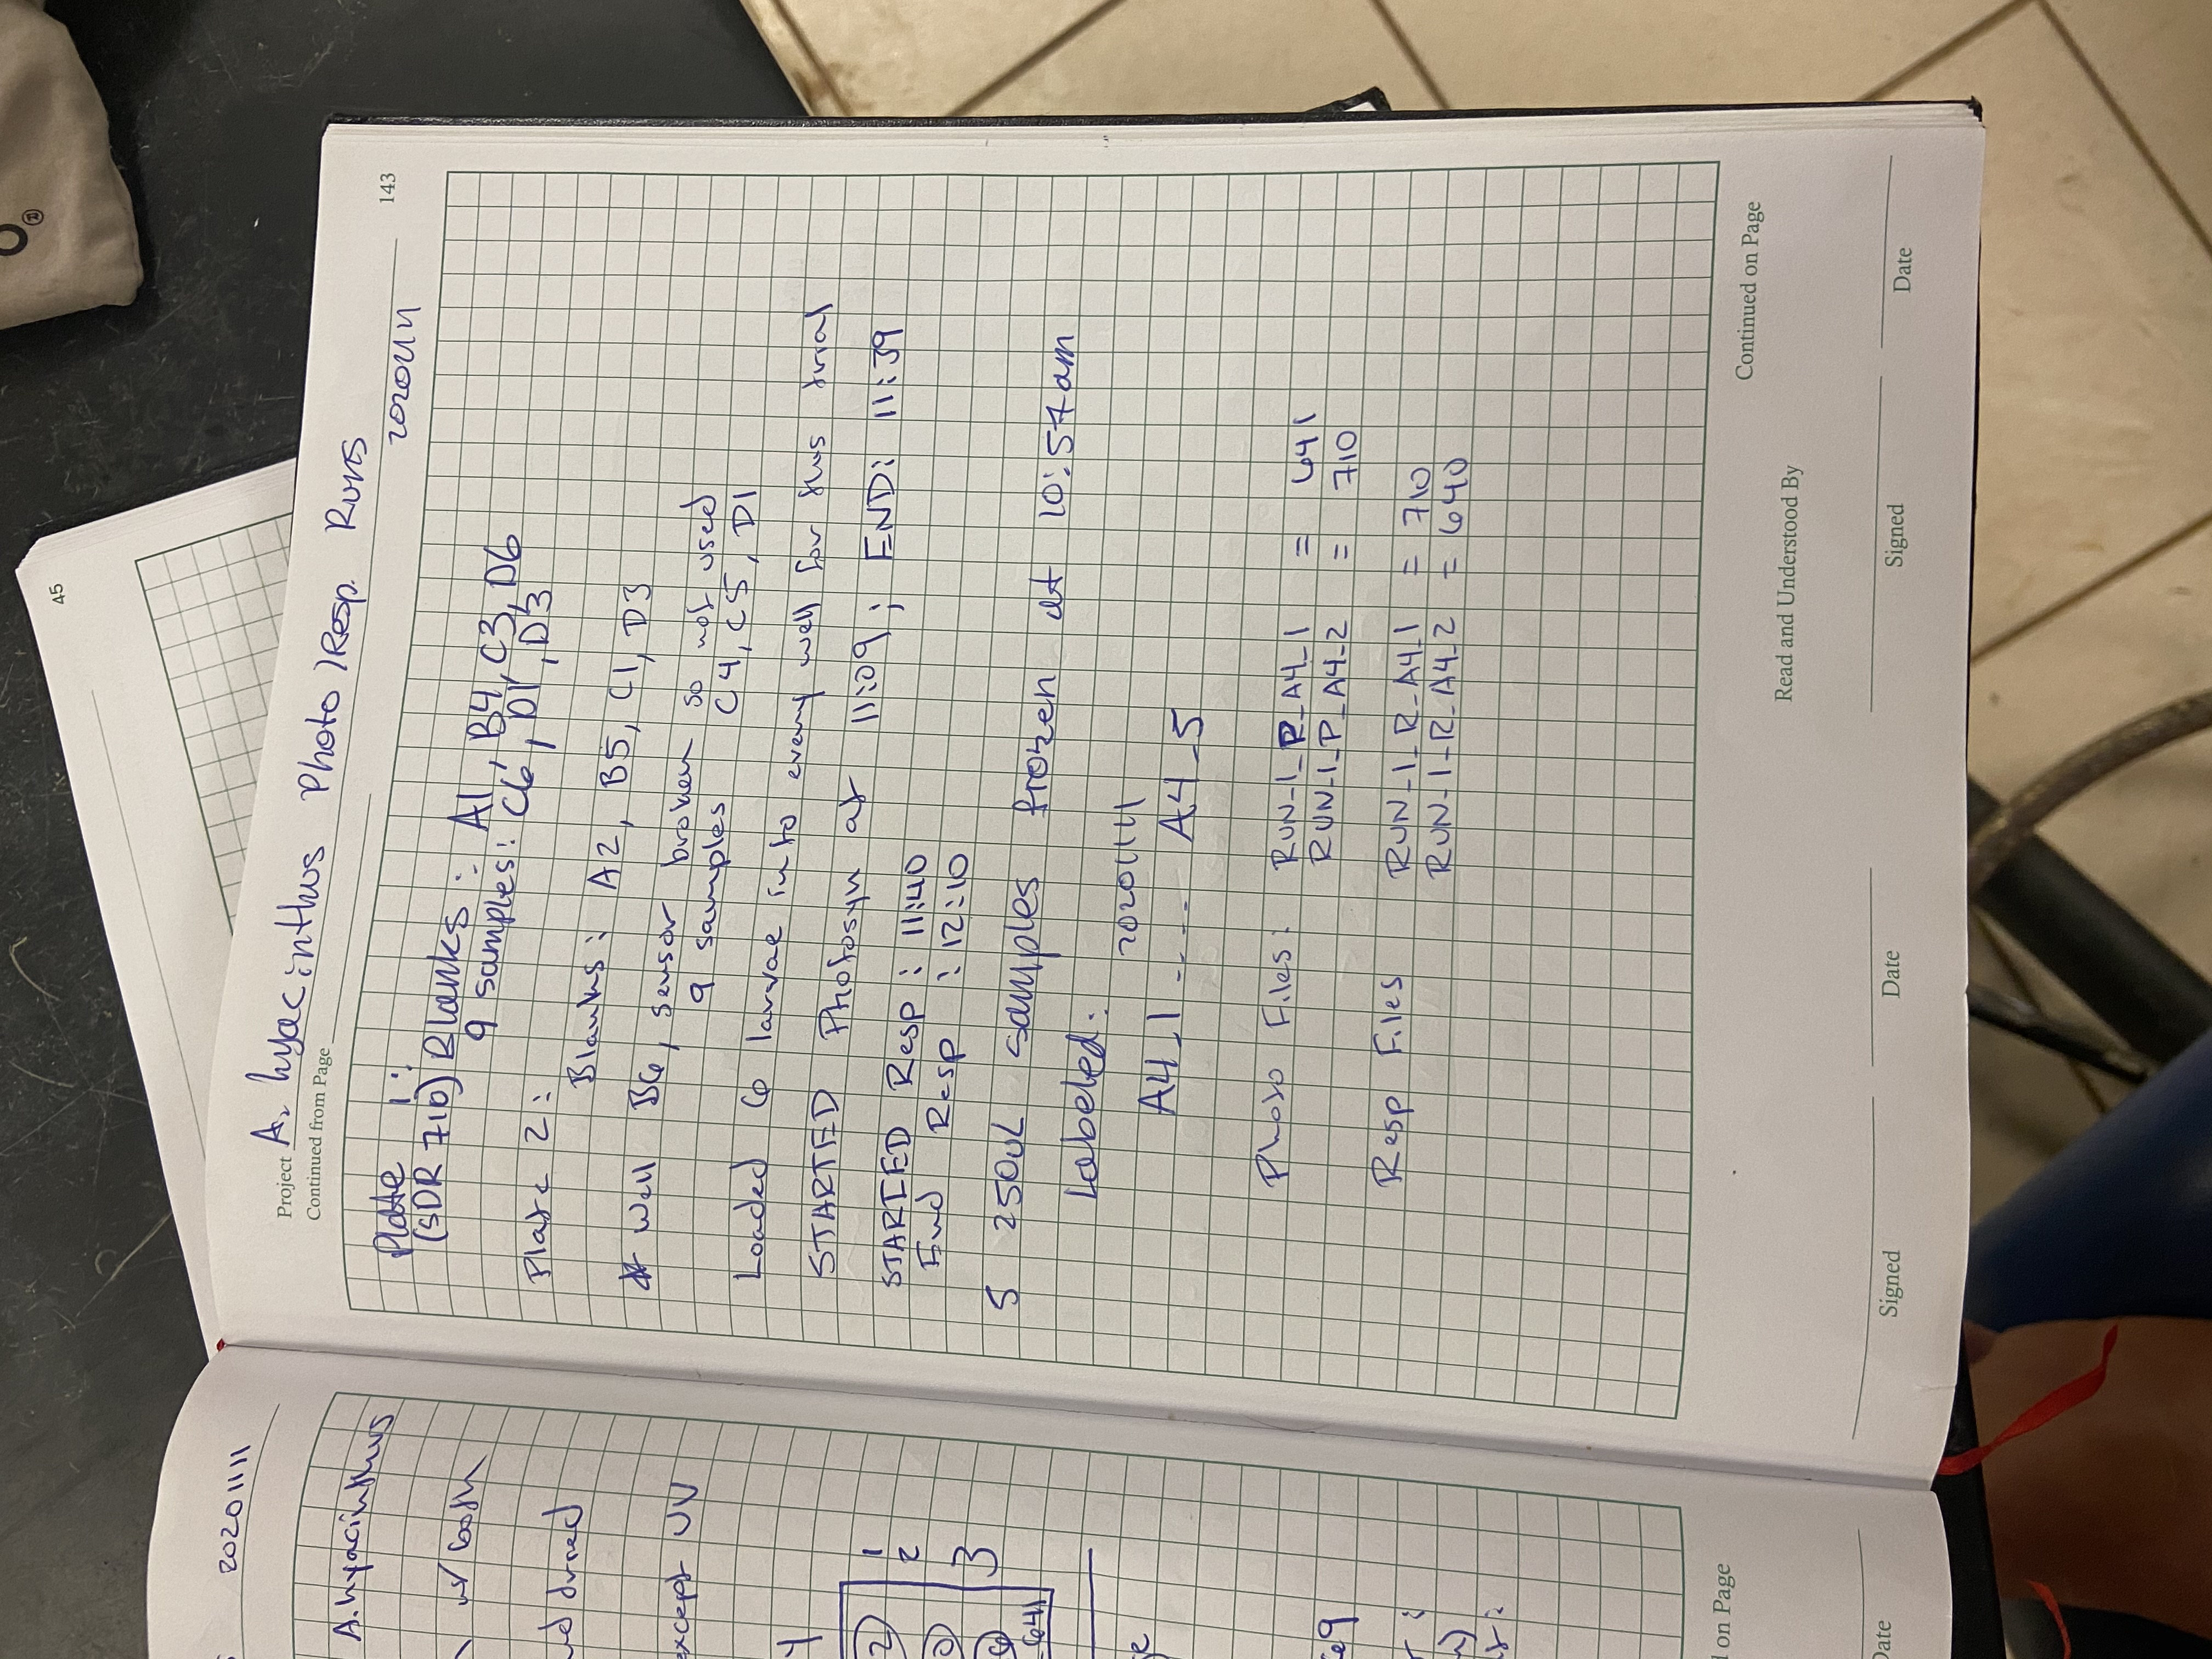 45
20201111
A. hyacinthus
w/ both
except UV
2
1
2
3
641
on Page
Date
Project A. hyacinthus Photo/Resp. Runs
Continued from Page
20201111
143
Plate 1:
(SDR 710) Blanks: A1, B4, C3, D6
9 samples: C6, D1, D3
Plate 2:
Blanks: A2, B5, C1, D3
* Well B6, sensor broken so not used
9 samples C4, C5, D1
Loaded 6 larvae into every well for this trial
STARTED Photosyn at 11:09; END: 11:39
STARTED Resp: 11:40
End Resp: 12:10
5 250uL samples frozen at 10:57am
Labeled:
20201111
A4_1 ---- A4_5
Photo Files: RUN_1_P_A4_1 = 641
RUN_1_P_A4_2 = 710
Resp Files RUN_1_R_A4_1 = 710
RUN_1_R_A4_2 = 640
Continued on Page
Read and Understood By
Signed Date Signed Date